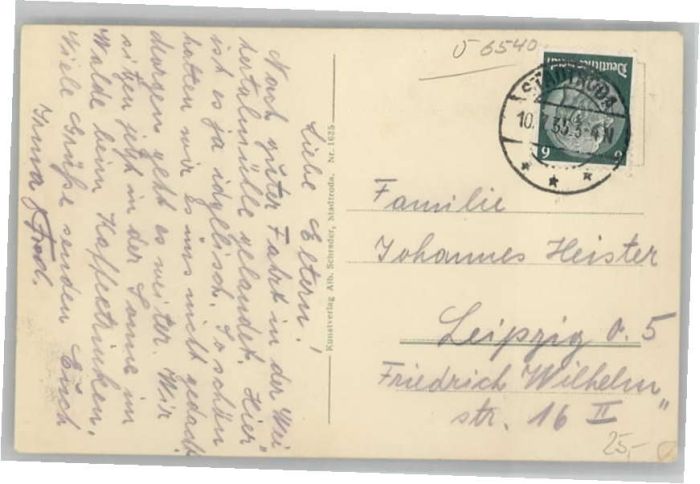 Liebe Eltern!
Nach guter Fahrt in der Wei
hertalmühle gelandet. Hier
ist es ja idyllisch. So schön
hatten wir es uns nicht gedacht.
Morgen geht es weiter. Wir
sitzen jetzt in der Sonne im
Walde beim Kaffeetrinken.
Viele Grüße senden Euch
Irma
Kunstverlag Alb. Schrader, Stadtroda. Nr. 1625
0 6540
Deutsches Reich
6 6
STADTRODA
10. 7. 35. 3-4 N
Familie
Johannes Heister
Leipzig O. 5
Friedrich Wilhelm"
str. 16 II
25,-